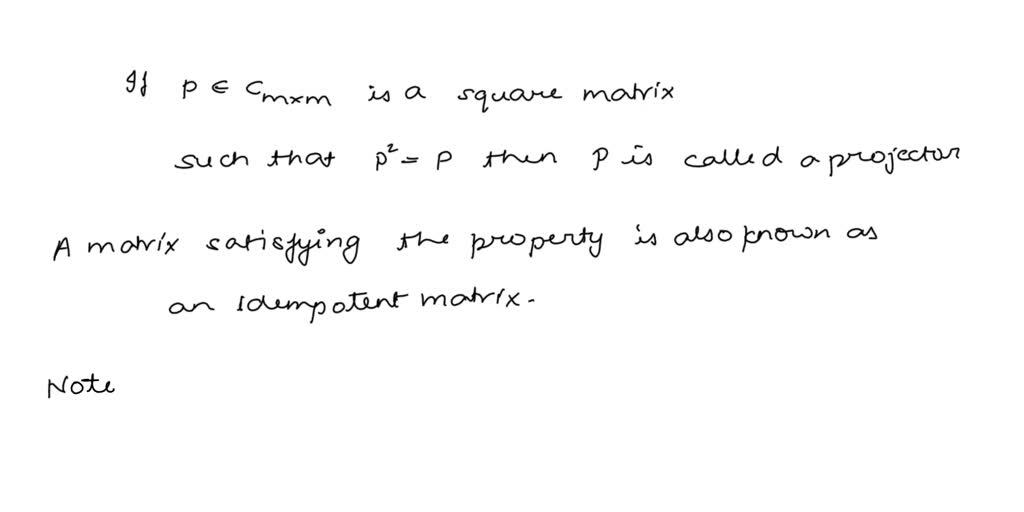 If P ∈ Cₘₓₘ is a square matrix
such that P² = P then P is called a projector
A matrix satisfying the property is also known as
an Idempotent matrix.
Note